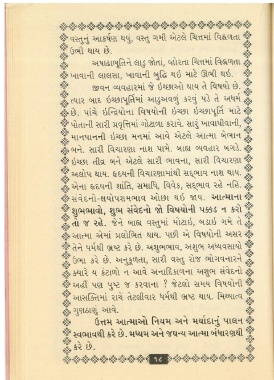 વસ્તુનું આકર્ષણ થયું. વસ્તુ ગમી એટલે ચિત્તમાં વિહ્વળતા
ઉભી થાય છે.
અષાઢાભૂતિને લાડુ જોતા, વહોરતા ચિત્તમાં વિહ્વળતા
ખાવાની લાલસા, ખાવાની બુદ્ધિ થઇ માટે ઊભી થઇ.
જીવન વ્યવહારમાં જે ઇચ્છાઓ થાય તે વિષયો છે.
ત્યાર બાદ ઇચ્છાપૂર્તિમાં આડુઅવળું કરવું પડે તે અધમ
છે. પાંચે ઇન્દ્રિયોના વિષયોની ઇચ્છા ઇચ્છાપૂર્તિ માટે
પોતાની સારી પ્રવૃત્તિમાં ગોટાળા કરાવે. સારું ખાવાપીવાની,
માનપાનની ઇચ્છા મનમાં આવે એટલે આત્મા બેભાન
બને. સારી વિચારણા નાશ પામે. બાહ્ય વ્યવહાર બગડે.
ઇચ્છા તીવ્ર બને એટલે સારી ભાવના, સારી વિચારણા
અલોપ થાય. હૃદયની વિચારણામાંથી સદ્ભાવ નાશ થાય.
એના હૃદયની શાંતિ, સમાધિ, વિવેક, સદ્ભાવ રહે નહિં.
સંવેદનો-ક્ષયોપશમભાવ ઓછા થઇ જાય. આત્માના
શુભભાવો, શુભ સંવેદનો જો વિષયોની પક્કડ ન કરો
તો જ રહે. જેને બાહ્ય વસ્તુમાં મોટાઇ, બડાઇ ગમે તે
આત્મા એમાં પ્રલોભિત થાય. પછી એ વિષયોની અસર
તેને ધર્મથી ભ્રષ્ટ કરે છે. અશુભભાવ, અશુભ અધ્યવસાયો
ઉભા કરે છે. અનુકૂળતા, સારી વસ્તુ રોજ ભોગવનારને
ક્યારે ય કંટાળો ન આવે અનાદિકાળના અશુભ સંવેદનો
અહીં પણ પુષ્ટ જ કરવાના ? જેટલો સમય વિષયોની
આસક્તિમાં રાચે તેટલીવાર ધર્મથી ભ્રષ્ટ થાય. મિથ્યાત્વ
ગુણઠાણું આવે.
ઉત્તમ આત્માઓ નિયમ અને મર્યાદાનું પાલન
સ્વભાવથી કરે છે. મધ્યમ અને જઘન્ય આત્મા બંધારણથી
કરે છે.